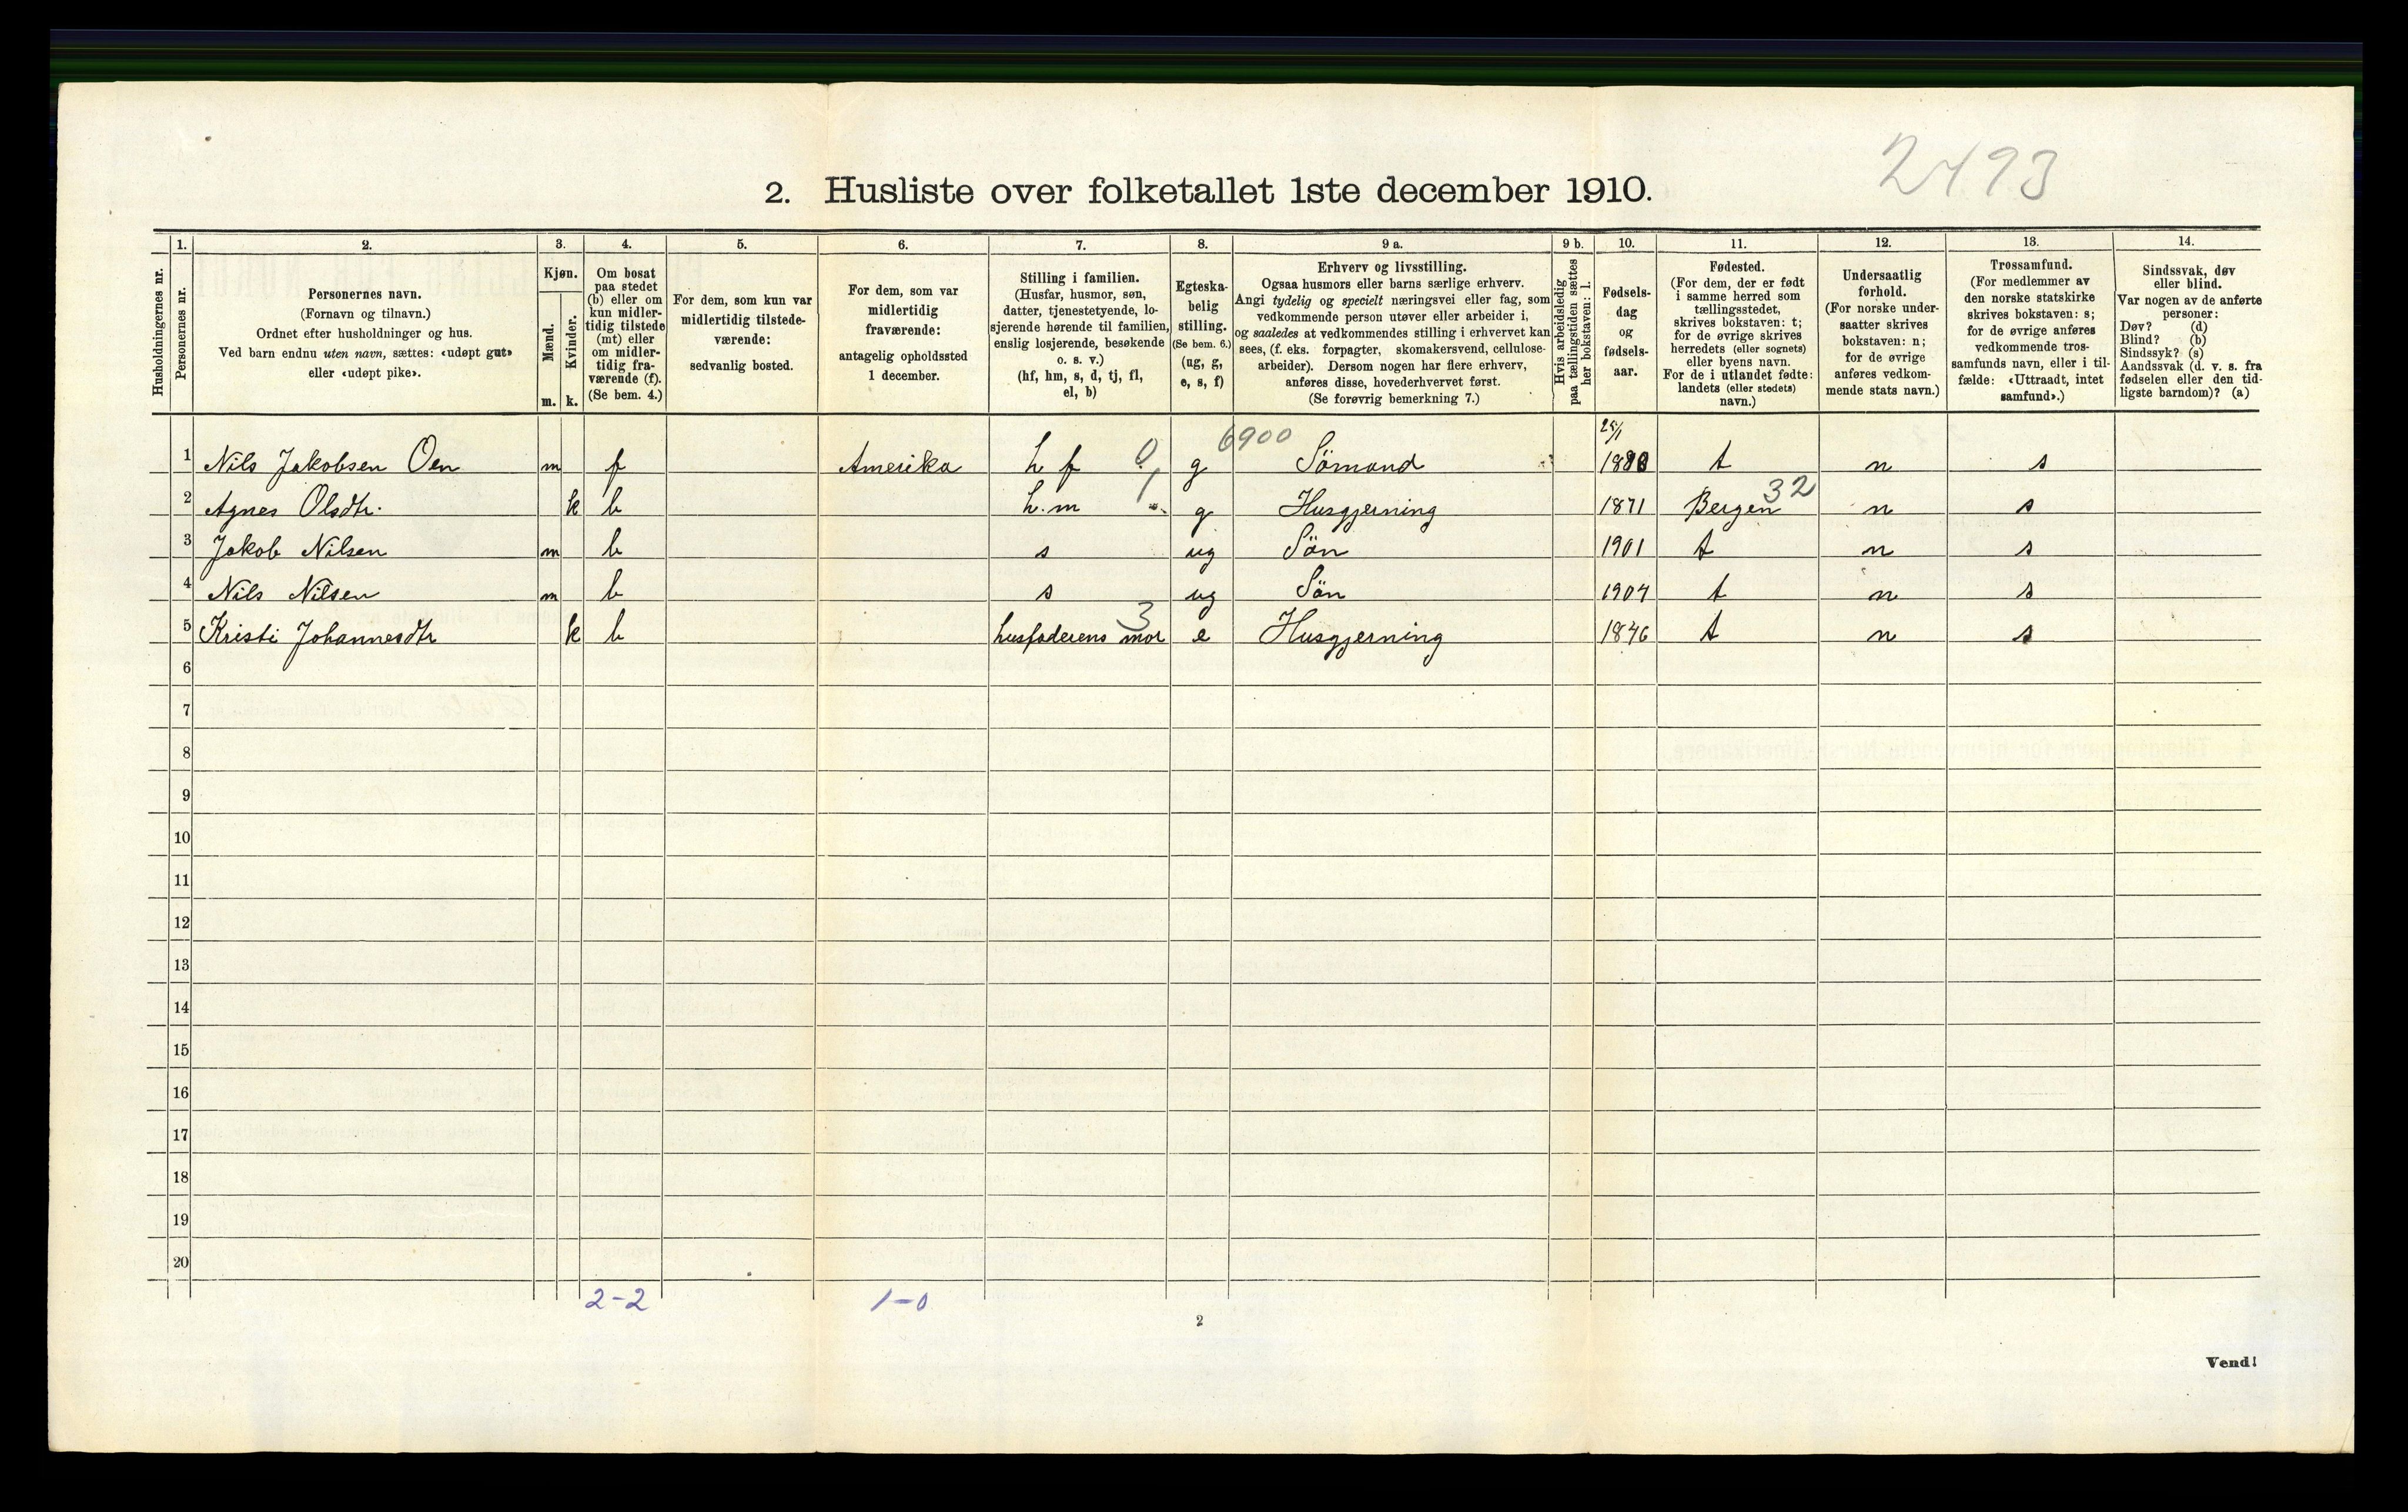 2493
2. Husliste over folketallet 1ste december 1910.
1. 2. 3. 4. 5. 6. 7. 8. 9 a. 9 b. 10. 11. 12. 13. 14.
Husholdningernes nr.
Personernes nr.
Personernes navn.
(Fornavn og tilnavn.)
Ordnet efter husholdninger og hus.
Ved barn endnu uten navn, sættes: «udøpt gut»
eller «udøpt pike».
Kjøn.
Mænd.
Kvinder.
m. k.
Om bosat
paa stedet
(b) eller om
kun midler-
tidig tilstede
(mt) eller
om midler-
tidig fra-
værende (f).
(Se bem. 4.)
For dem, som kun var
midlertidig tilstede-
værende:
sedvanlig bosted.
For dem, som var
midlertidig
fraværende:
antagelig opholdssted
1 december.
Stilling i familien.
(Husfar, husmor, søn,
datter, tjenestetyende, lo-
sjerende hørende til familien,
enslig losjerende, besøkende
o. s. v.)
(hf, hm, s, d, tj, fl,
el, b)
Egteska-
belig
stilling.
(Se bem. 6.)
(ug, g,
e, s, f)
Erhverv og livsstilling.
Ogsaa husmors eller barns særlige erhverv.
Angi tydelig og specielt næringsvei eller fag, som
vedkommende person utøver eller arbeider i,
og saaledes at vedkommendes stilling i erhvervet kan
sees, (f. eks. forpagter, skomakersvend, cellulose-
arbeider). Dersom nogen har flere erhverv,
anføres disse, hovederhvervet først.
(Se forøvrig bemerkning 7.)
Hvis arbeidsledig
paa tællingstiden sættes
her bokstaven: l.
Fødsels-
dag
og
fødsels-
aar.
Fødested.
(For dem, der er født
i samme herred som
tællingsstedet,
skrives bokstaven: t;
for de øvrige skrives
herredets (eller sognets)
eller byens navn.
For de i utlandet fødte:
landets (eller stedets)
navn.)
Undersaatlig
forhold.
(For norske under-
saatter skrives
bokstaven: n;
for de øvrige
anføres vedkom-
mende stats navn.)
Trossamfund.
(For medlemmer av
den norske statskirke
skrives bokstaven: s;
for de øvrige anføres
vedkommende tros-
samfunds navn, eller i til-
fælde: «Uttraadt, intet
samfund».)
Sindssvak, døv
eller blind.
Var nogen av de anførte
personer:
Døv? (d)
Blind? (b)
Sindssyk? (s)
Aandssvak (d. v. s. fra
fødselen eller den tid-
ligste barndom)? (a)
6900 25/1
1 Nils Jakobsen Oen m f Amerika h f 0 g Sömand 1880 t n s
2 Agnes Olsdtr. k b h.m 1 g Husgjerning 1871 Bergen 32 n s
3 Jakob Nilsen m b s ug Sön 1901 t n s
4 Nils Nilsen m b s ug Sön 1904 t n s
5 Kristi Johannesdtr k b husfaderens mor 3 e Husgjerning 1846 t n s
6
7
8
9
10
11
12
13
14
15
16
17
18
19
20
2-2 1-0
2
Vend!